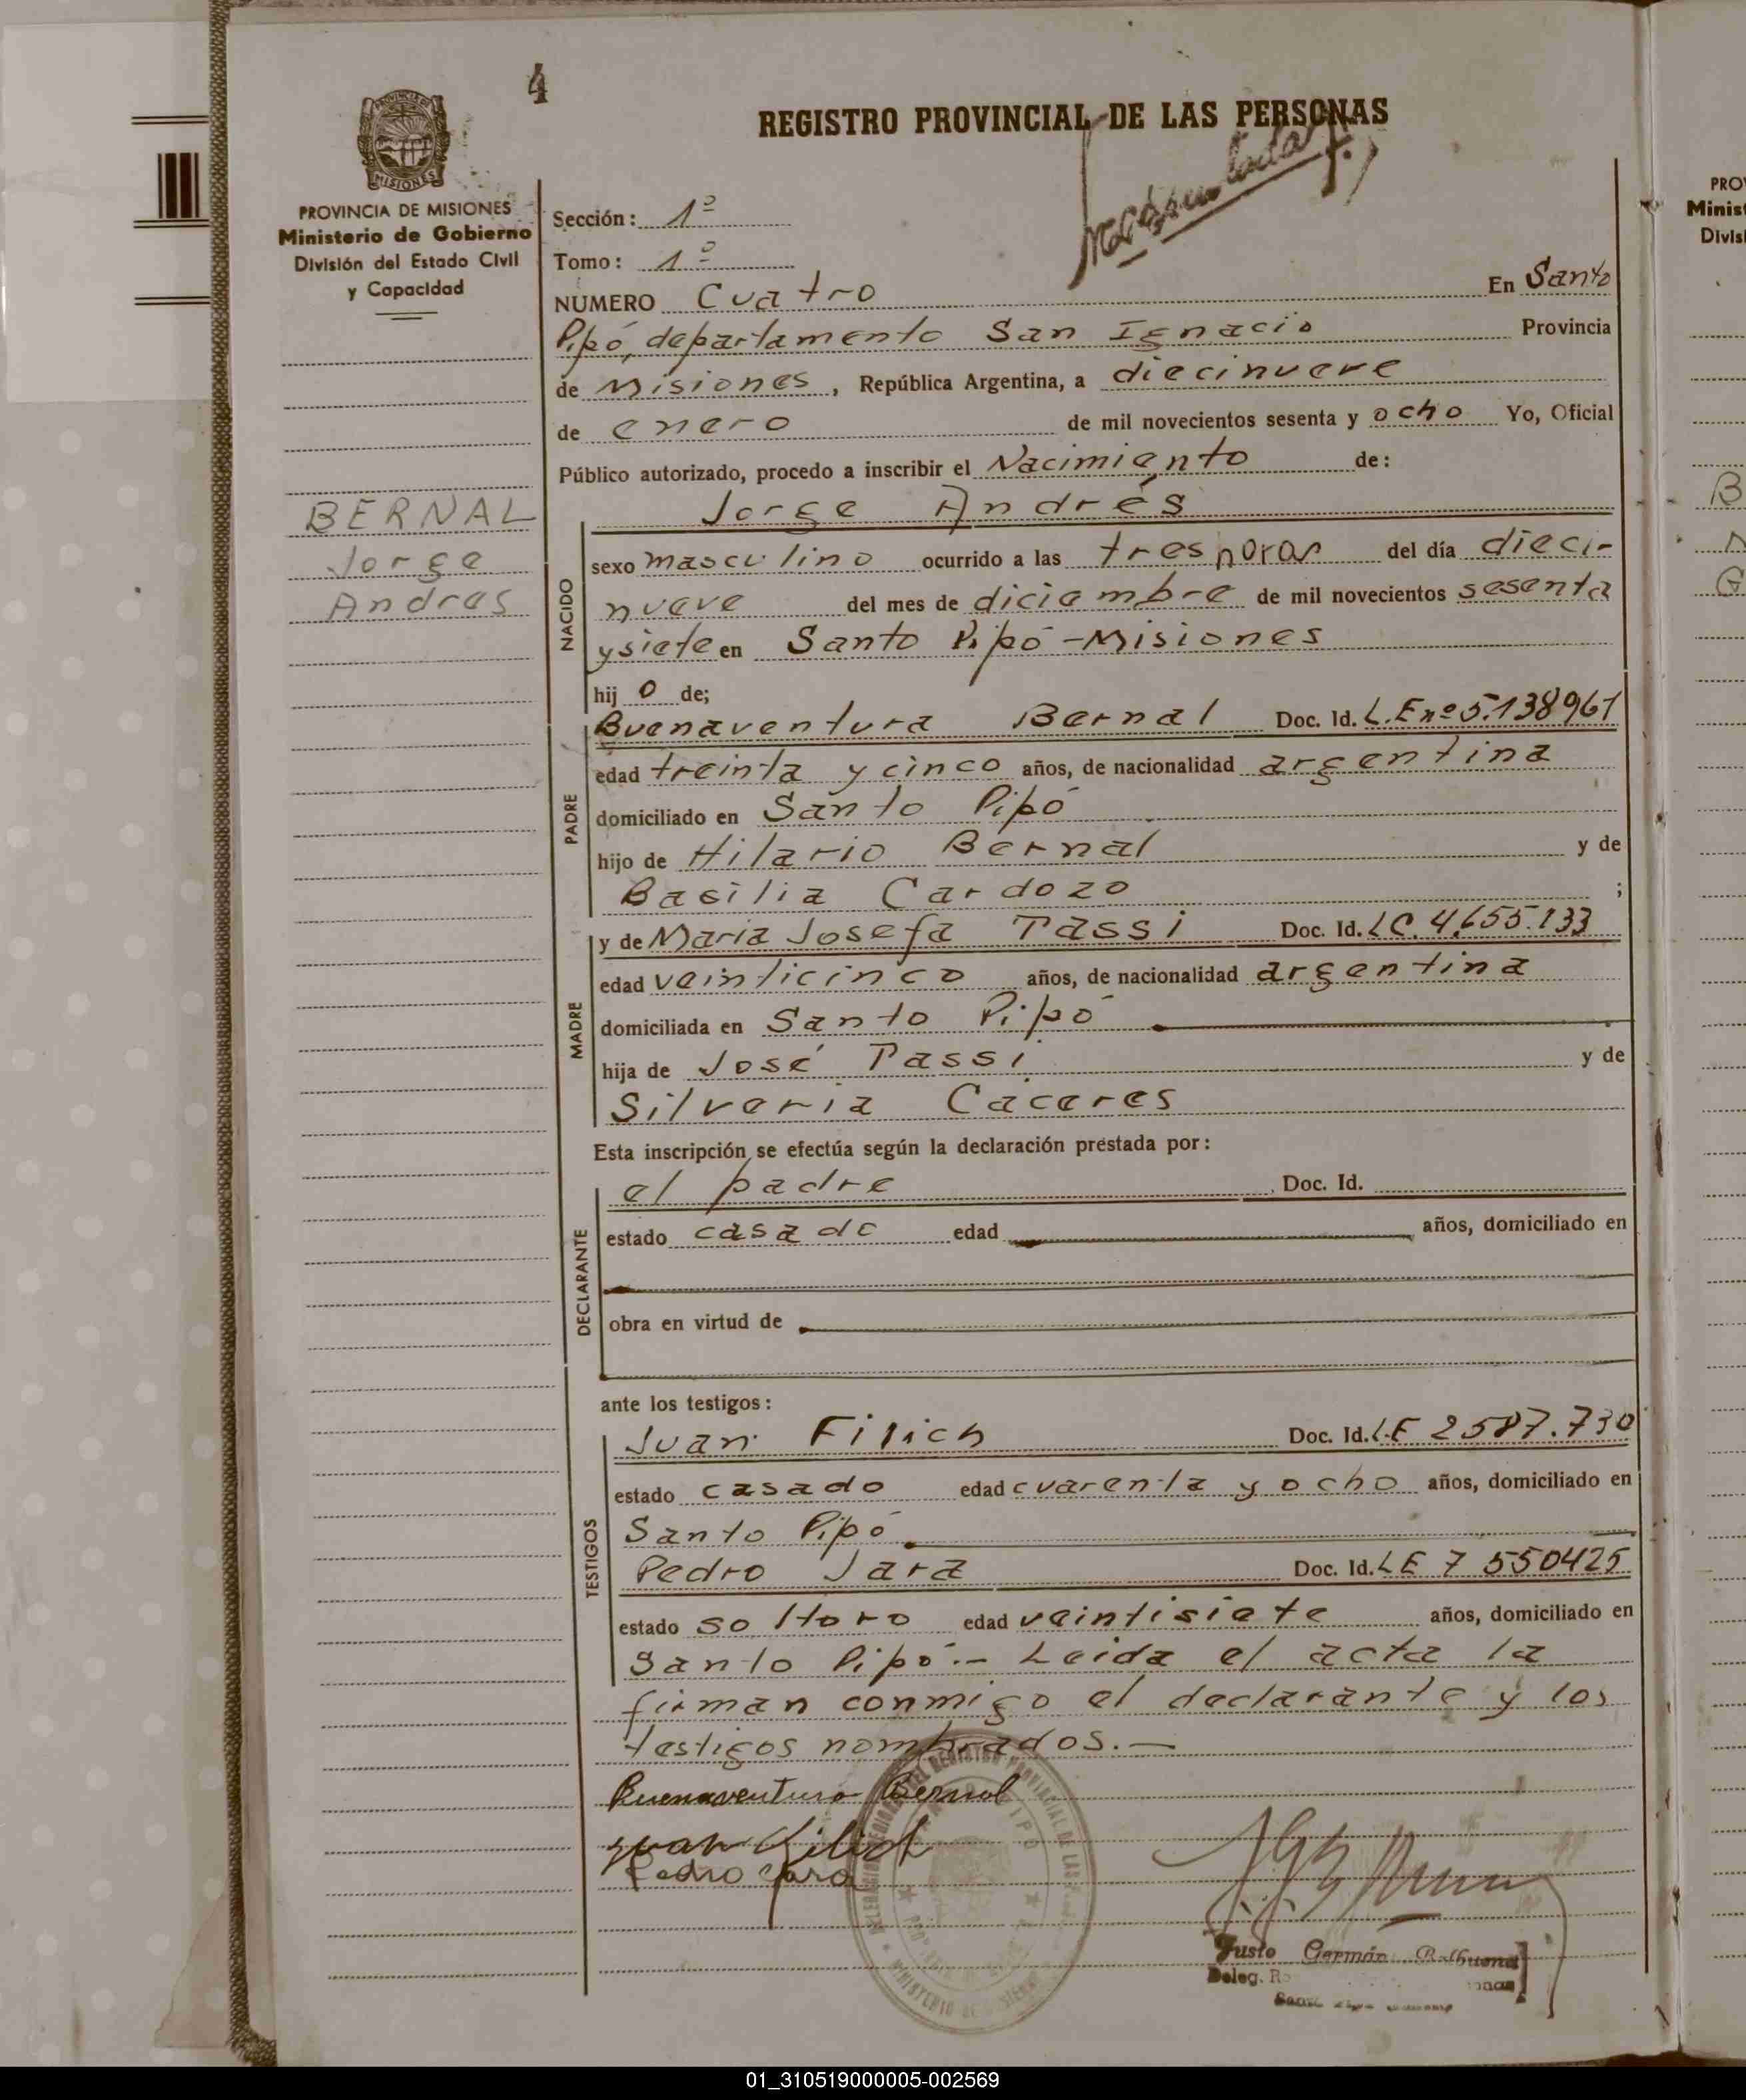 4
REGISTRO PROVINCIAL DE LAS PERSONAS
PROVINCIA DE MISIONES
Ministerio de Gobierno
División del Estado Civil
y Capacidad
Sección: 1º
Tomo: 1º
NUMERO Cuatro En Santo
Pipó, departamento San Ignacio Provincia
de Misiones, República Argentina, a diecinueve
de enero de mil novecientos sesenta y ocho Yo, Oficial
Público autorizado, procedo a inscribir el Nacimiento de:
BERNAL
Jorge
Andres
Jorge Andrés
NACIDO
sexo masculino ocurrido a las tres horas del día dieci-
nueve del mes de diciembre de mil novecientos sesenta
y siete en Santo Pipó - Misiones
hijo de;
PADRE
Buenaventura Bernal Doc. Id. L.E nº 5.138961
edad treinta y cinco años, de nacionalidad argentina
domiciliado en Santo Pipó
hijo de Hilario Bernal y de
Basilia Cardozo ;
MADRE
y de Maria Josefa Tassi Doc. Id. LC. 4.655.133
edad veinticinco años, de nacionalidad argentina
domiciliada en Santo Pipó
hija de José Tassi y de
Silveria Caceres
Esta inscripción se efectúa según la declaración prestada por:
DECLARANTE
el padre Doc. Id.
estado casado edad años, domiciliado en
obra en virtud de
ante los testigos:
TESTIGOS
Juan Filich Doc. Id. L.E 2587.730
estado casado edad cuarenta y ocho años, domiciliado en
Santo Pipó
Pedro Jara Doc. Id. LE 7 550425
estado soltero edad veintisiete años, domiciliado en
Santo Pipó.- Leida el acta la
firman conmigo el declarante y los
testigos nombrados.—
Buenaventura Bernal
Juan Filich
Pedro Jara
Justo Germán Balbuena
Deleg.
01_310519000005-002569